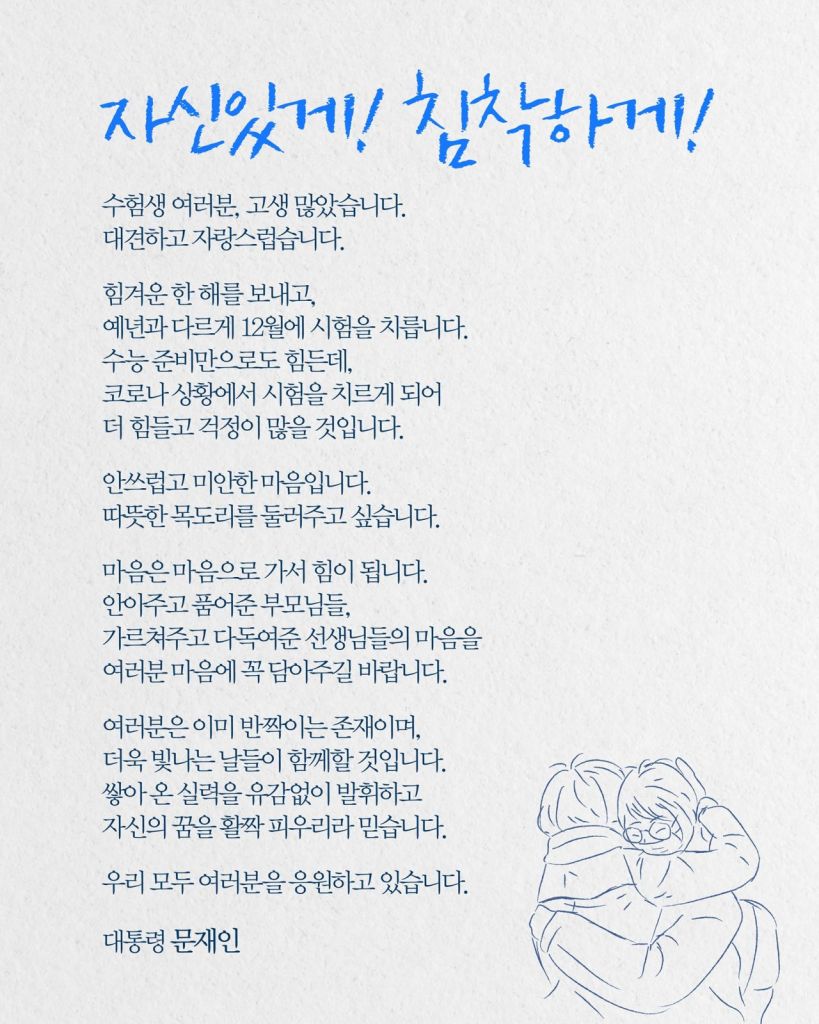 자신있게! 침착하게!
수험생 여러분, 고생 많았습니다.
대견하고 자랑스럽습니다.
힘겨운 한 해를 보내고,
예년과 다르게 12월에 시험을 치릅니다.
수능 준비만으로도 힘든데,
코로나 상황에서 시험을 치르게 되어
더 힘들고 걱정이 많을 것입니다.
안쓰럽고 미안한 마음입니다.
따뜻한 목도리를 둘러주고 싶습니다.
마음은 마음으로 가서 힘이 됩니다.
안아주고 품어준 부모님들,
가르쳐주고 다독여준 선생님들의 마음을
여러분 마음에 꼭 담아주길 바랍니다.
여러분은 이미 반짝이는 존재이며,
더욱 빛나는 날들이 함께할 것입니다.
쌓아 온 실력을 유감없이 발휘하고
자신의 꿈을 활짝 피우리라 믿습니다.
우리 모두 여러분을 응원하고 있습니다.
대통령 문재인